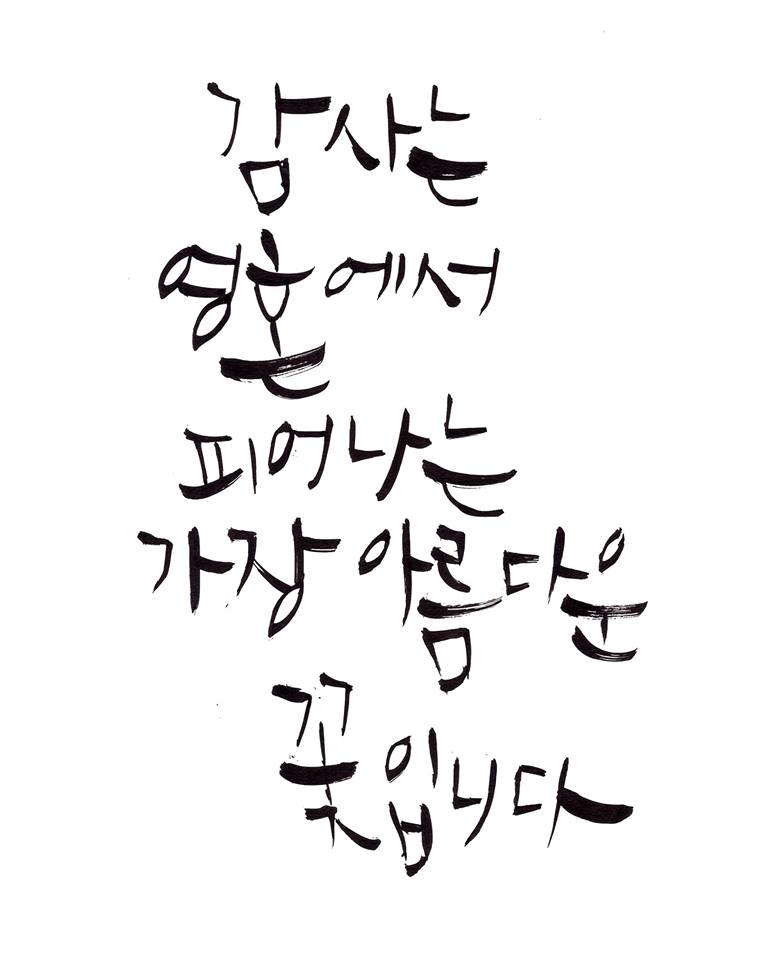 감사는
영혼에서
피어나는
가장 아름다운
꽃입니다